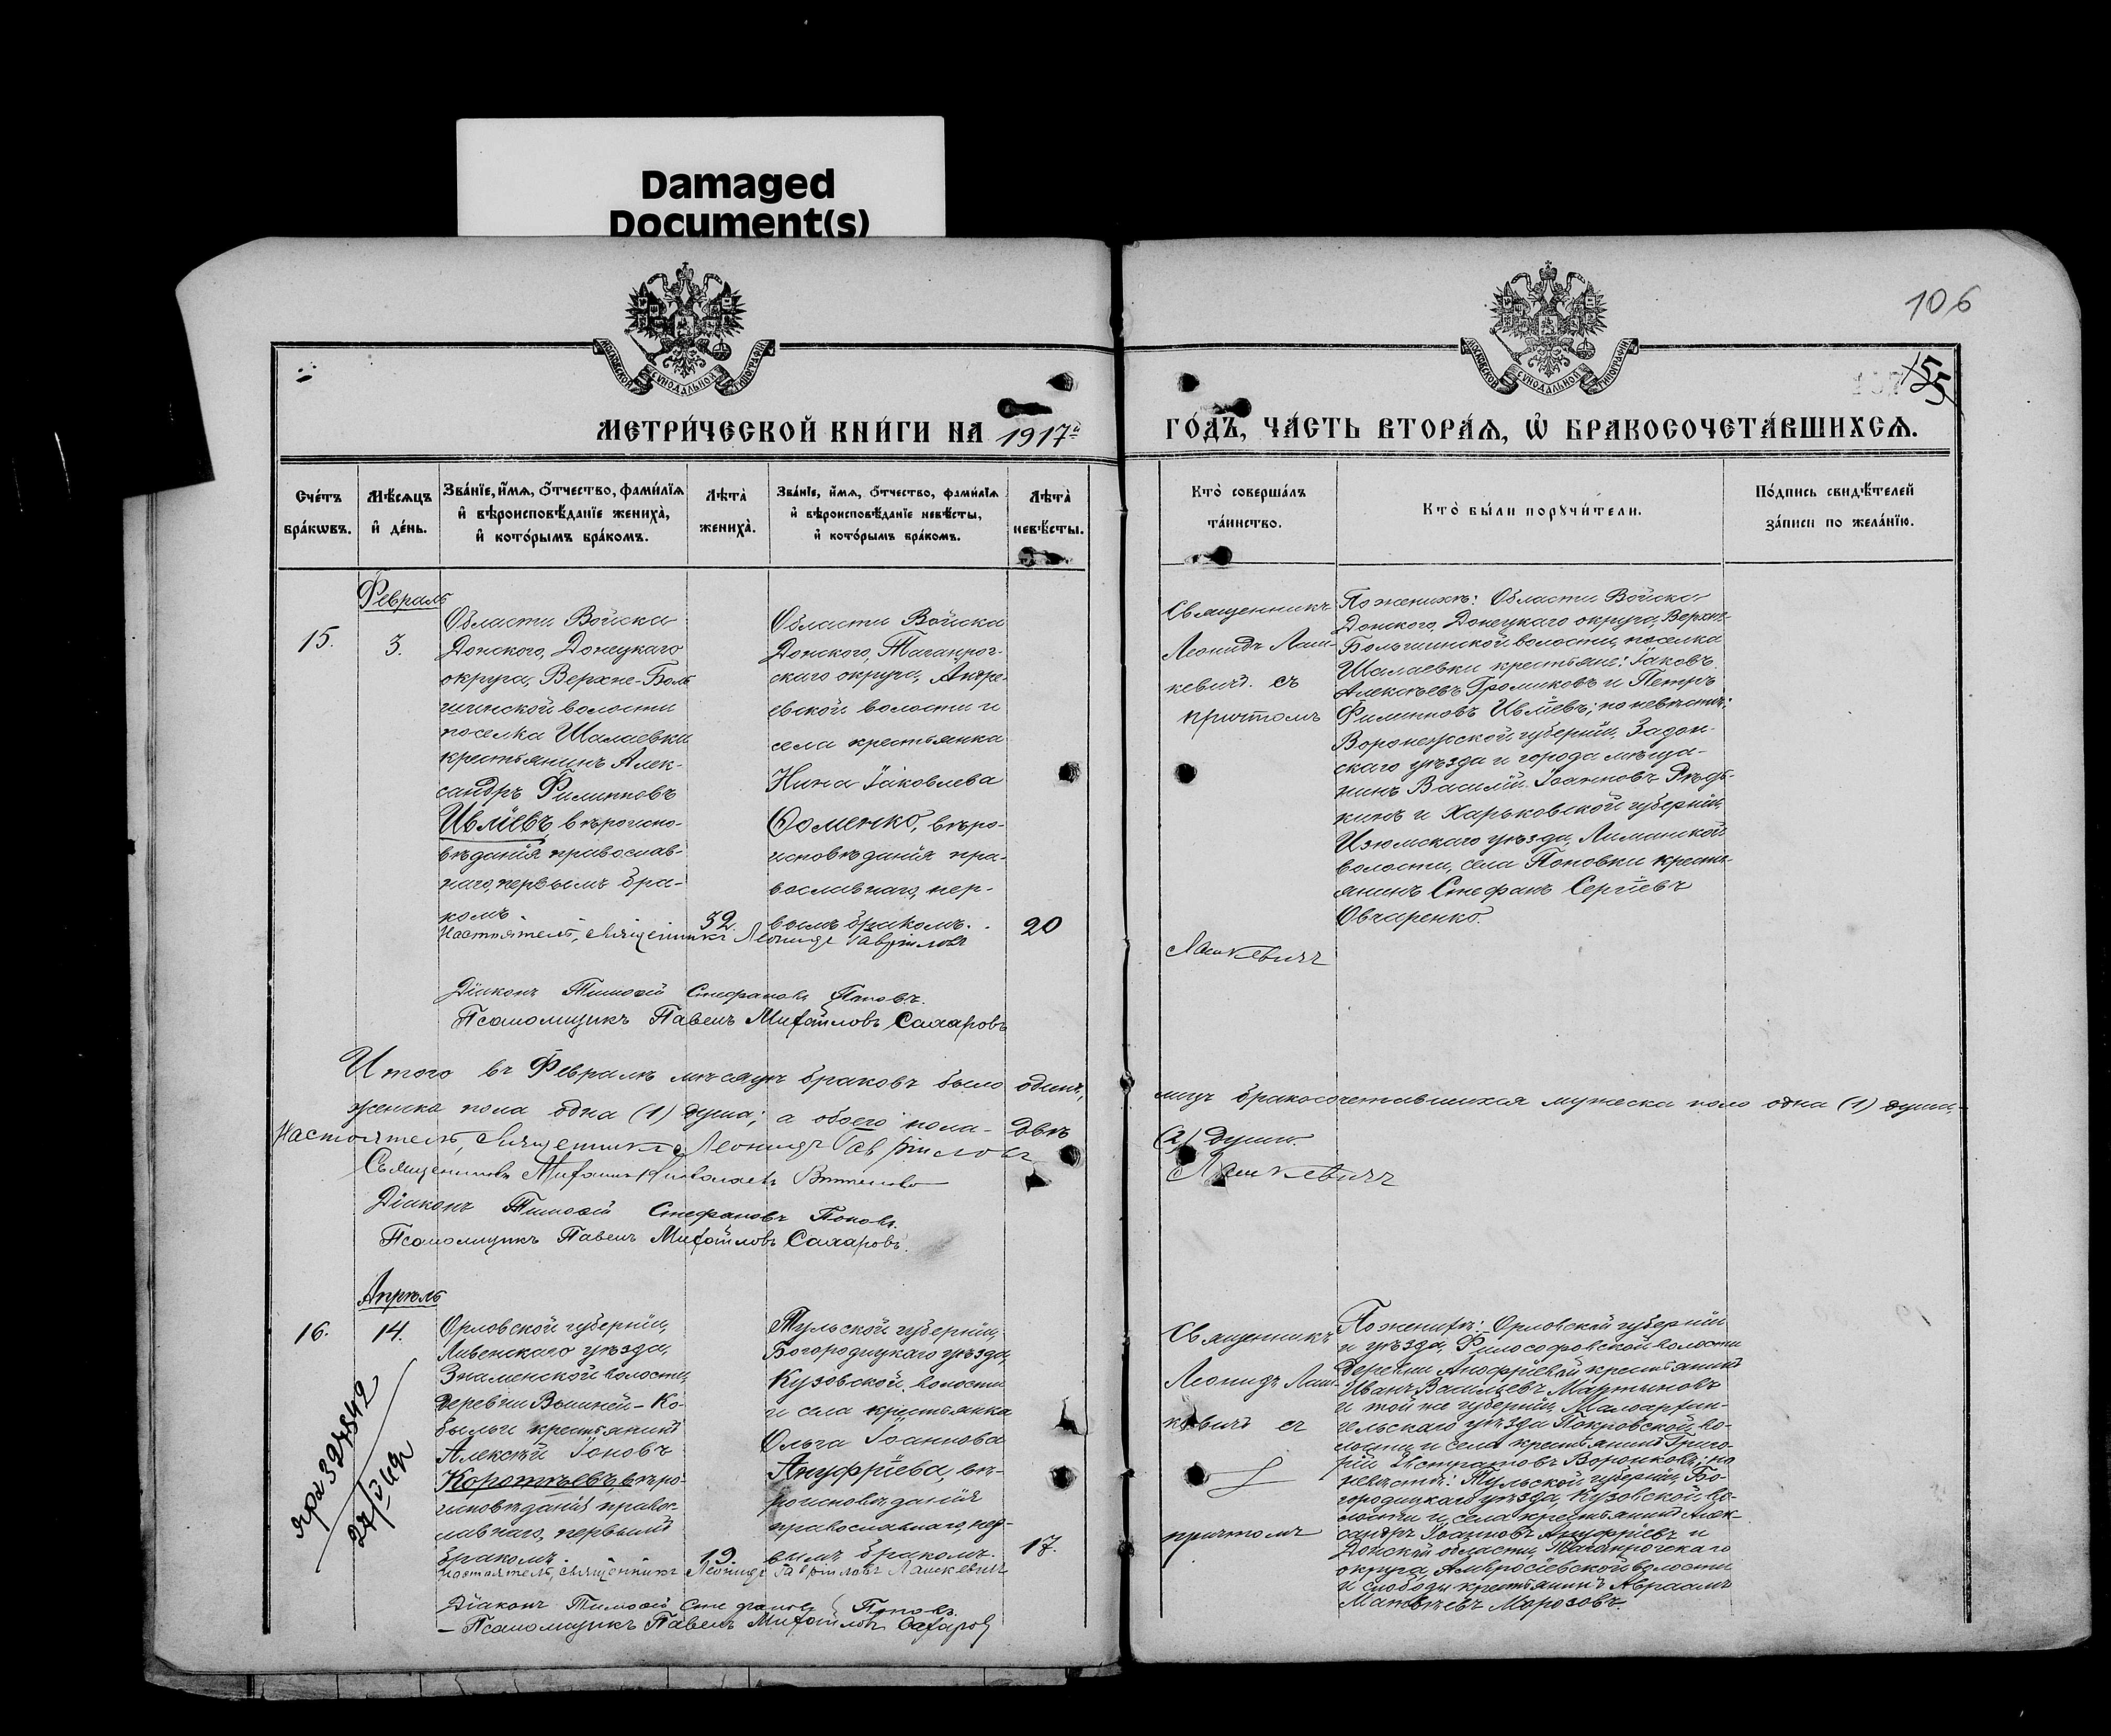 Damaged
Document(s)
106
МОСКОВСКОЙ СѴНОДАЛЬНОЙ ТИПОГРАФІИ
МОСКОВСКОЙ СѴНОДАЛЬНОЙ ТИПОГРАФІИ
155
МЕТРИ́ЧЕСКОЙ КНИ́ГИ НА 1917й
ГО́ДЪ, ЧА́СТЬ ВТОРА́Ѧ, Ѡ҆ БРАКОСОЧЕТА́ВШИХСѦ.
Сче́тъ бра́кѡвъ.
Мѣ́сѧцъ и҆ де́нь.
Зва́нїе, и҆́мѧ, ѻ҆́тчество, фами́лїѧ
и҆ вѣроисповѣ́данїе жениха̀,
и҆ кото́рымъ бра́комъ.
Лѣта̀ жениха̀.
Зва́нїе, и҆́мѧ, ѻ҆́тчество, фами́лїѧ
и҆ вѣроисповѣ́данїе невѣ́сты,
и҆ кото́рымъ бра́комъ.
Лѣта̀ невѣ́сты.
Кто̀ соверша́лъ
та́инство.
Кто̀ бы́ли порꙋчи́тели.
По́дпись свидѣ́телей
за́писи по жела́нїю.
Февраль
15.
3.
Области Войска
Донского, Донецкаго
округа, Верхне-Боль
шинской волости
поселка Шалаевки
крестьянинъ Алек-
сандръ Филипповъ
Ивлiевъ, вѣроиспо-
вѣданiя православ-
наго, первымъ бра-
комъ.
32.
Области Войска
Донского, Таганрог-
скаго округа, Андре-
евской волости и
села крестьянка
Нина Iаковлева
Ѳоменко, вѣро-
исповѣданiя пра-
вославнаго, пер-
вымъ бракомъ.
20
Священникъ
Леонидъ Лаш-
кевичъ съ
причтомъ
По женихѣ: Области Войска
Донского, Донецкаго округа, Верхне-
Большинской волости, поселка
Шалаевки крестьяне: Iаковъ
Алексѣевъ Громиковъ и Петръ
Филипповъ Ивлiевъ; по невѣстѣ:
Воронежской губернiи, Задон-
скаго уѣзда и города мѣща-
нинъ Василiй Iоанновъ Рѣдь-
кинъ и Харьковской губернiи,
Изюмскаго уѣзда, Лиманской
волости, села Поповки кресть-
янинъ Стефанъ Сергiевъ
Овчаренко.
Настоятель, священникъ Леонидъ Гаврiиловъ Лашкевичъ
Дiаконъ Тимоѳей Стефановъ Поповъ.
Псаломщикъ Павелъ Михайловъ Сахаровъ
Итого въ Февралѣ мѣсяцѣ браковъ было одинъ, лицъ бракосочетавшихся мужеска пола одна (1) душа,
женска пола одна (1) душа; а обоего пола - двѣ (2) души.
Настоятель, священникъ Леонидъ Гаврiиловъ Лашкевичъ
Священникъ Михаилъ Николаевъ
Дiаконъ Тимоѳей Стефановъ Поповъ.
Псаломщикъ Павелъ Михайловъ Сахаровъ.
Апрѣль
16.
14.
Орловской губернiи,
Ливенскаго уѣзда,
Знаменской волости,
деревни Вышней-Ко-
былы крестьянинъ
Алексѣй Iоновъ
Коротѣевъ, вѣро-
исповѣданiя правос-
лавнаго, первымъ
бракомъ.
19.
Тульской губернiи,
Богородицкаго уѣзда,
Кузовской волости
и села крестьянка
Ольга Iоаннова
Ануфрiева, вѣ-
роисповѣданiя
православнаго, пер-
вымъ бракомъ.
17.
Священникъ
Леонидъ Лаш-
кевичъ съ
причтомъ
По женихѣ: Орловской губернiи
и уѣзда, Философовской волости
деревни Анофрiевой крестьянинъ
Иванъ Васильевъ Мартыновъ
и той же губернiи, Малоархан-
гельскаго уѣзда Покровской во-
лости и села крестьянинъ Григо-
рiй Истратовъ Воронковъ; по
невѣстѣ: Тульской губернiи, Бо-
городицкаго уѣзда, Кузовской во-
лости и села крестьянинъ Алек-
сандръ Iоанновъ Ануфрiевъ и
Донской области, Таганрогскаго
округа, Амвросiевской волости
и слободы крестьянинъ Авраамъ
Матвѣевъ Морозовъ.
Настоятель, священникъ Леонидъ Гаврiиловъ Лашкевичъ
Дiаконъ Тимоѳей Стефановъ Поповъ.
Псаломщикъ Павелъ Михайловъ Сахаровъ